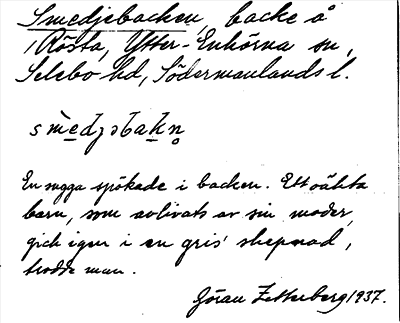 Smedjebacken, backe å
Rösta, Ytter-Enhörna sn,
Selebo hd, Södermanlands l.
smedjəbakn̥
En sugga spökade i backen. Ett oäkta
barn, som avlivats av sin moder,
gick igen i en gris' skepnad,
trodde man.
Göran Zetterberg 1937.